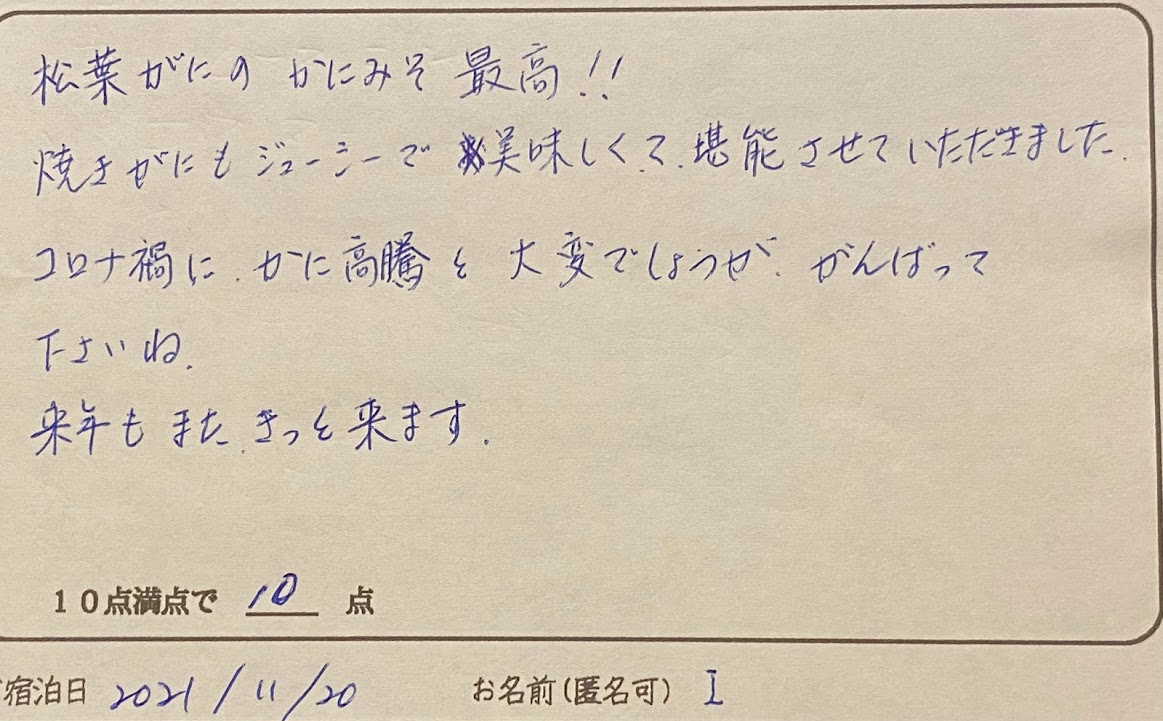 松葉がにの かにみそ 最高!!
焼きがにも ジューシーで 美味しくて、堪能させていただきました。
コロナ禍に、かに高騰と 大変でしょうが、がんばって
下さいね。
来年も また、きっと来ます。
10点満点で 10 点
宿泊日 2021/11/20 お名前(匿名可) I